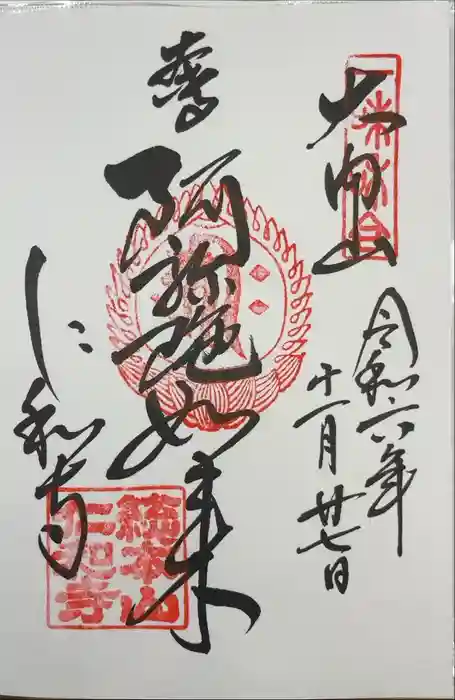 大内山
令和六年
十一月廿七日
奉
阿弥陀如来
仁和寺
總本山
仁和寺